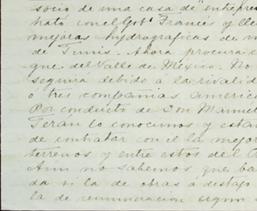 socio de una casa de "entrepre
trató con el Gob.º Francés y lle
mejoras hydrograficas de
de Tunis. Ahora procura
que del Valle de México. No
seguirá debido á la rivalid
ó tres compañias americ
Por conducto de Don Manuel
Teran lo conocimos y esta
de contratar con el la mejor
terrenos y entre estos del
Aun no sabemos que ba
da si la de obras á destajo
la de remuneracion segun